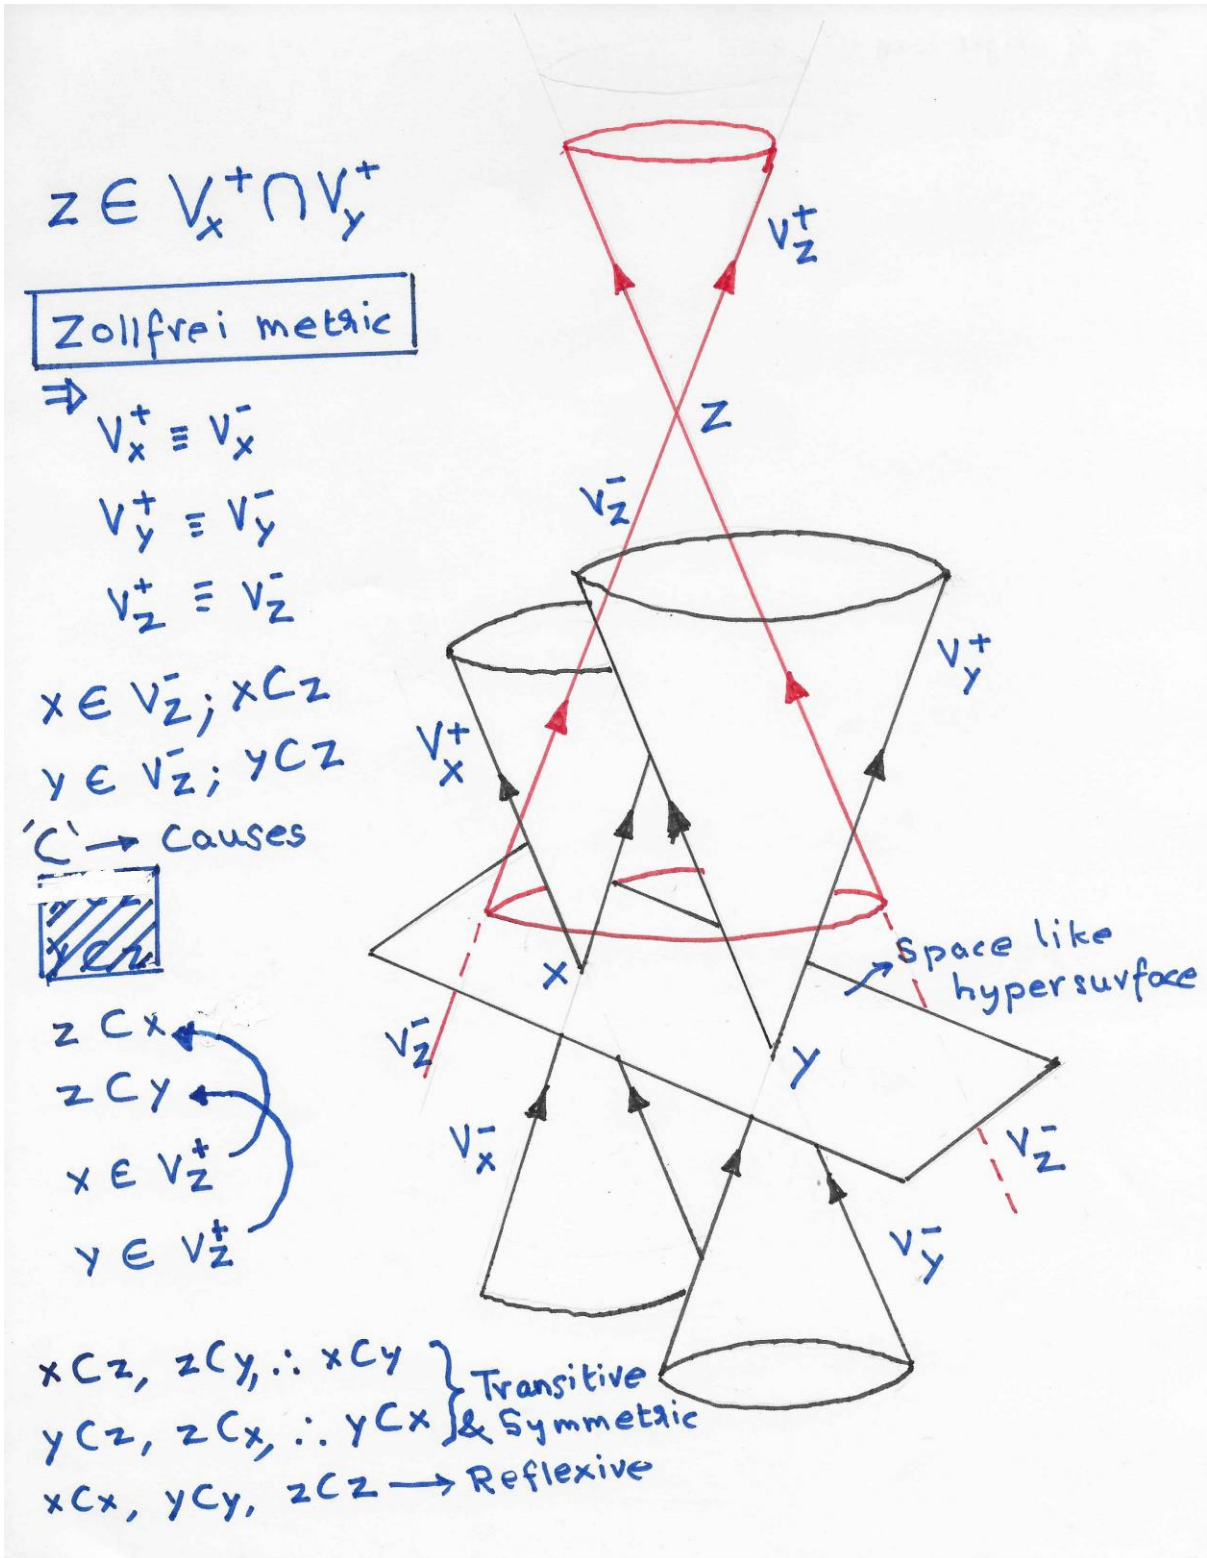 z ∈ V_x^+ ∩ V_y^+
Zollfrei metric
⇒
V_x^+ ≡ V_x^-
V_y^+ ≡ V_y^-
V_z^+ ≡ V_z^-
x ∈ V_z^-; xCz
y ∈ V_z^-; yCz
'C' → causes
z C x
z C y
x ∈ V_z^+
y ∈ V_z^+
xCz, zCy, ∴ xCy } Transitive
yCz, zCx, ∴ yCx } & Symmetric
xCx, yCy, zCz → Reflexive
V_z^+
z
V_z^-
V_y^+
V_x^+
x
Space like
hypersurface
V_z^-
y
V_x^-
V_z^-
V_y^-